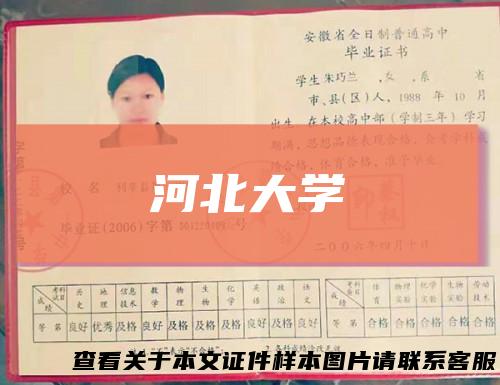 安徽省全日制普通高中
毕业证书
学生 朱巧兰 ,女 ,系 省
市、县(区)人, 1988 年 10 月
出生
在本校高中部(学制三年)学习
期满,思想品德表现合格,会考学科成
绩合格,体育合格,准予毕业。
河北大学
校名
毕业证(2006)字第
二00六年四月十日
考科科目 成绩 历史 地理 信息技术 数学 物理 生物 化学 英语 政治 语文
等第 良好 优秀 及格 良好 及格 及格 及格 良好 良好 良好
考查科目 成绩 体育 物理实验 化学实验 生物实验 劳动技术
等第 合格 合格 合格 合格 合格
查看关于本文证件样本图片请联系客服